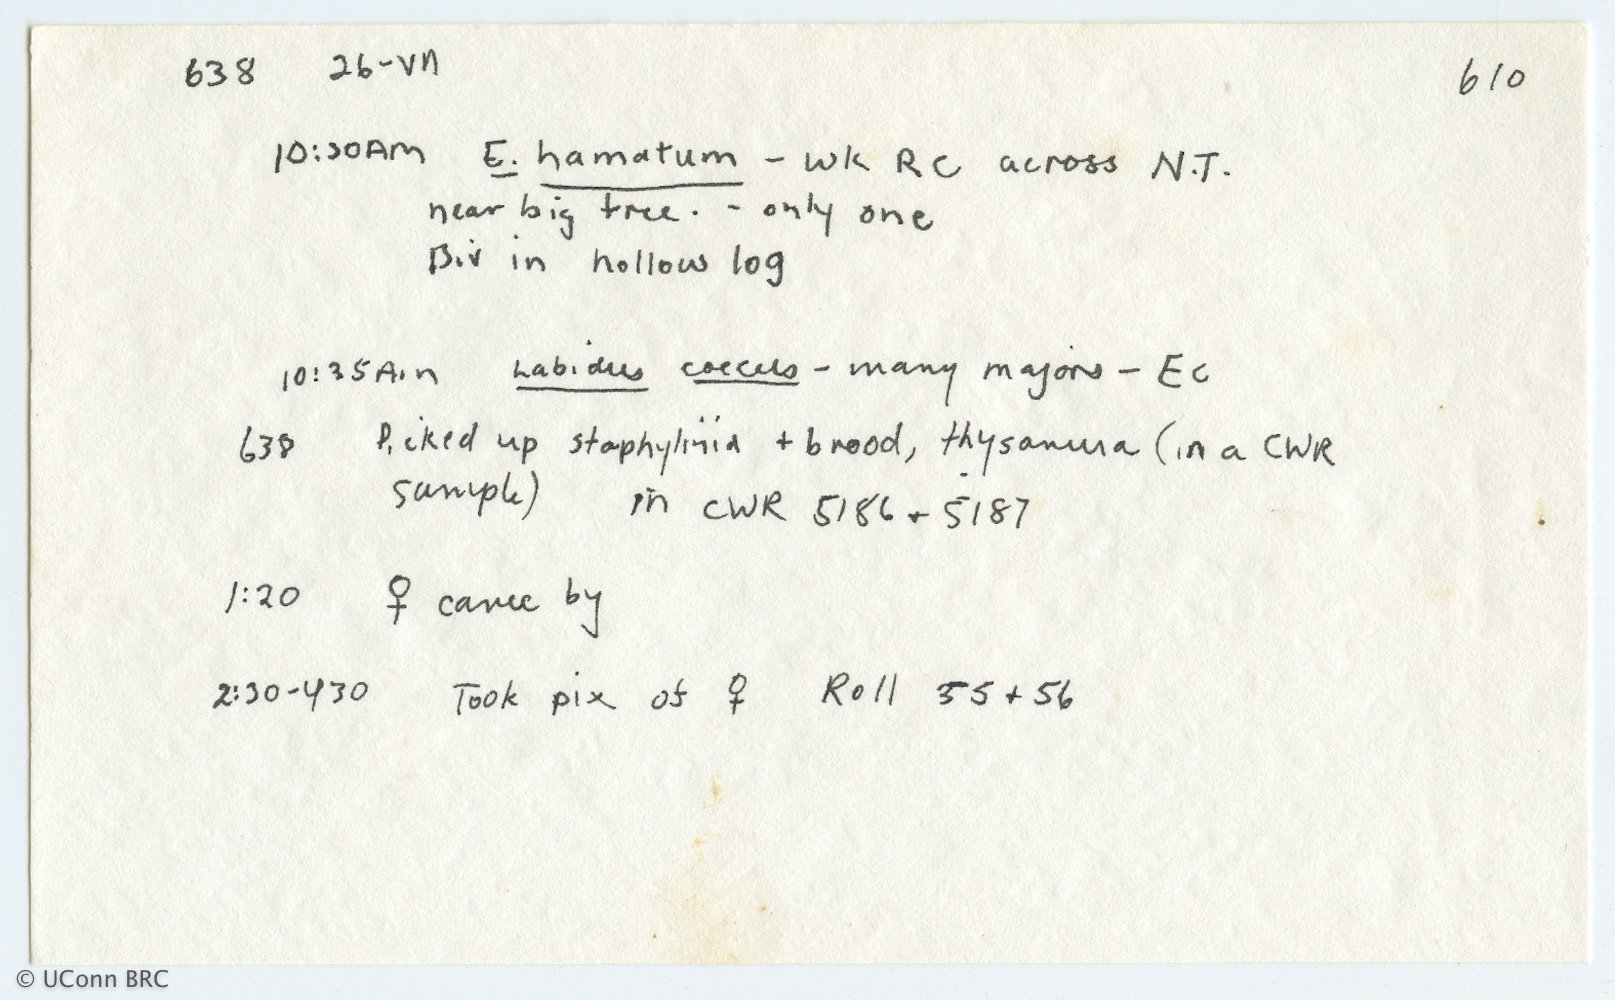 638 26-VII 610
10:30AM E. hamatum - wk RC across N.T.
near big tree. - only one
Biv in hollow log
10:35Am Labidus coecus - many majors - Ec
638 Picked up staphylinid + brood, thysanura (in a CWR
sample) in CWR 5186 + 5187
1:20 ♀ came by
2:30-430 Took pix of ♀ Roll 55 + 56
© UConn BRC